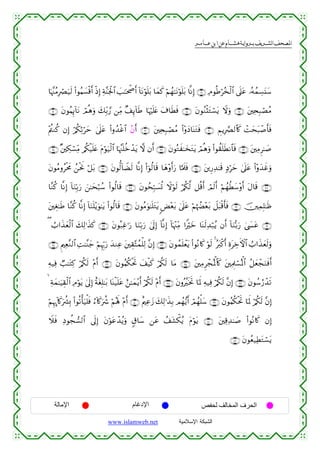 المصحف الشريف برواية هشام عن ابن عامر
سَنَسِمُهُۥ عَلَى ٱلْخُرْطُومِ إِنَّا بَلَوْنَٰهُمْ كَمَا بَلَوْنَآ أَصْحَٰبَ ٱلْجَنَّةِ إِذْ أَقْسَمُوا۟ لَيَصْرِمُنَّهَا
مُصْبِحِينَ وَلَا يَسْتَثْنُونَ فَطَافَ عَلَيْهَا طَآئِفٌ مِّن رَّبِّكَ وَهُمْ نَآئِمُونَ
فَأَصْبَحَتْ كَٱلصَّرِيمِ فَتَنَادَوْا۟ مُصْبِحِينَ أَنُ ٱغْدُوا۟ عَلَىٰ حَرْثِكُمْ إِن كُنتُمْ
صَٰرِمِينَ فَٱنطَلَقُوا۟ وَهُمْ يَتَخَٰفَتُونَ أَن لَّا يَدْخُلَنَّهَا ٱلْيَوْمَ عَلَيْكُم مِّسْكِينٌ
وَغَدَوْا۟ عَلَىٰ حَرْدٍ قَٰدِرِينَ فَلَمَّا رَأَوْهَا قَالُوٓا۟ إِنَّا لَضَآلُّونَ بَلْ نَحْنُ مَحْرُومُونَ
قَالَ أَوْسَطُهُمْ أَلَمْ أَقُل لَّكُمْ لَوْلَا تُسَبِّحُونَ قَالُوا۟ سُبْحَٰنَ رَبِّنَآ إِنَّا كُنَّا
ظَٰلِمِينَ فَأَقْبَلَ بَعْضُهُمْ عَلَىٰ بَعْضٍ يَتَلَٰوَمُونَ قَالُوا۟ يَٰوَيْلَنَآ إِنَّا كُنَّا طَٰغِينَ
عَسَىٰ رَبُّنَآ أَن يُبْدِلَنَا خَيْرًا مِّنْهَآ إِنَّآ إِلَىٰ رَبِّنَا رَٰغِبُونَ كَذَٰلِكَ ٱلْعَذَابُ
وَلَعَذَابُ ٱلْأٓخِرَةِ أَكْبَرُ لَوْ كَانُوا۟ يَعْلَمُونَ إِنَّ لِلْمُتَّقِينَ عِندَ رَبِّهِمْ جَنَّٰتِ ٱلنَّعِيمِ
أَفَنَجْعَلُ ٱلْمُسْلِمِينَ كَٱلْمُجْرِمِينَ مَا لَكُمْ كَيْفَ تَحْكُمُونَ أَمْ لَكُمْ كِتَٰبٌ فِيهِ
تَدْرُسُونَ إِنَّ لَكُمْ فِيهِ لَمَا تَخَيَّرُونَ أَمْ لَكُمْ أَيْمَٰنٌ عَلَيْنَا بَٰلِغَةٌ إِلَىٰ يَوْمِ ٱلْقِيَٰمَةِ
إِنَّ لَكُمْ لَمَا تَحْكُمُونَ سَلْهُمْ أَيُّهُم بِذَٰلِكَ زَعِيمٌ أَمْ لَهُمْ شُرَكَآءُ فَلْيَأْتُوا۟ بِشُرَكَآئِهِمْ
إِن كَانُوا۟ صَٰدِقِينَ يَوْمَ يُكْشَفُ عَن سَاقٍ وَيُدْعَوْنَ إِلَى ٱلسُّجُودِ فَلَا
يَسْتَطِيعُونَ
الحرف المخالف لحفص الإدغام الإمالة
الشبكة الإسلامية www.islamweb.net